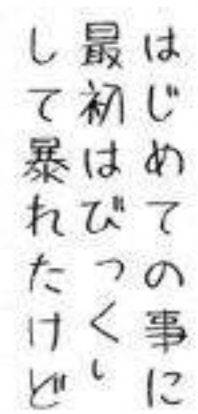 はじめての事に
最初はびっくし
して暴れたけど